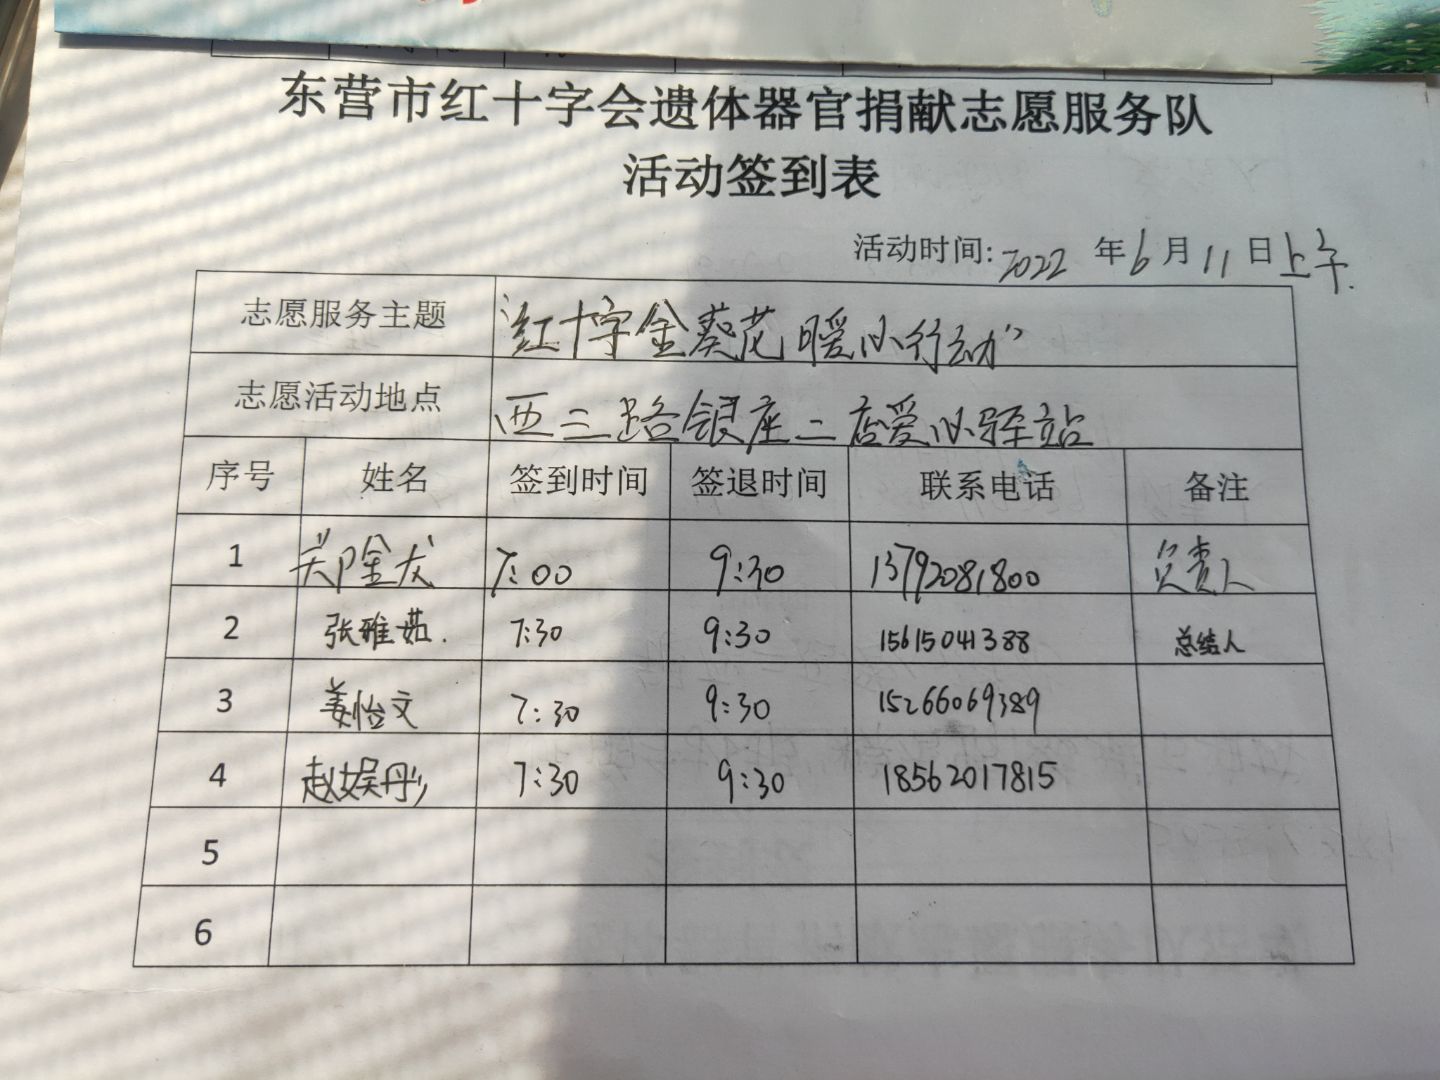 东营市红十字会遗体器官捐献志愿服务队
活动签到表
活动时间:2022年6月11日上午.
志愿服务主题 “红十字金葵花暖心行动”
志愿活动地点 西三路银座二店爱心驿站
序号 姓名 签到时间 签退时间 联系电话 备注
1 7:00 9:30 13792081800 负责人
2 张雅茹. 7:30 9:30 15615041388 总结人
3 姜怡文 7:30 9:30 15266069389
4 赵娱彤 7:30 9:30 18562017815
5
6